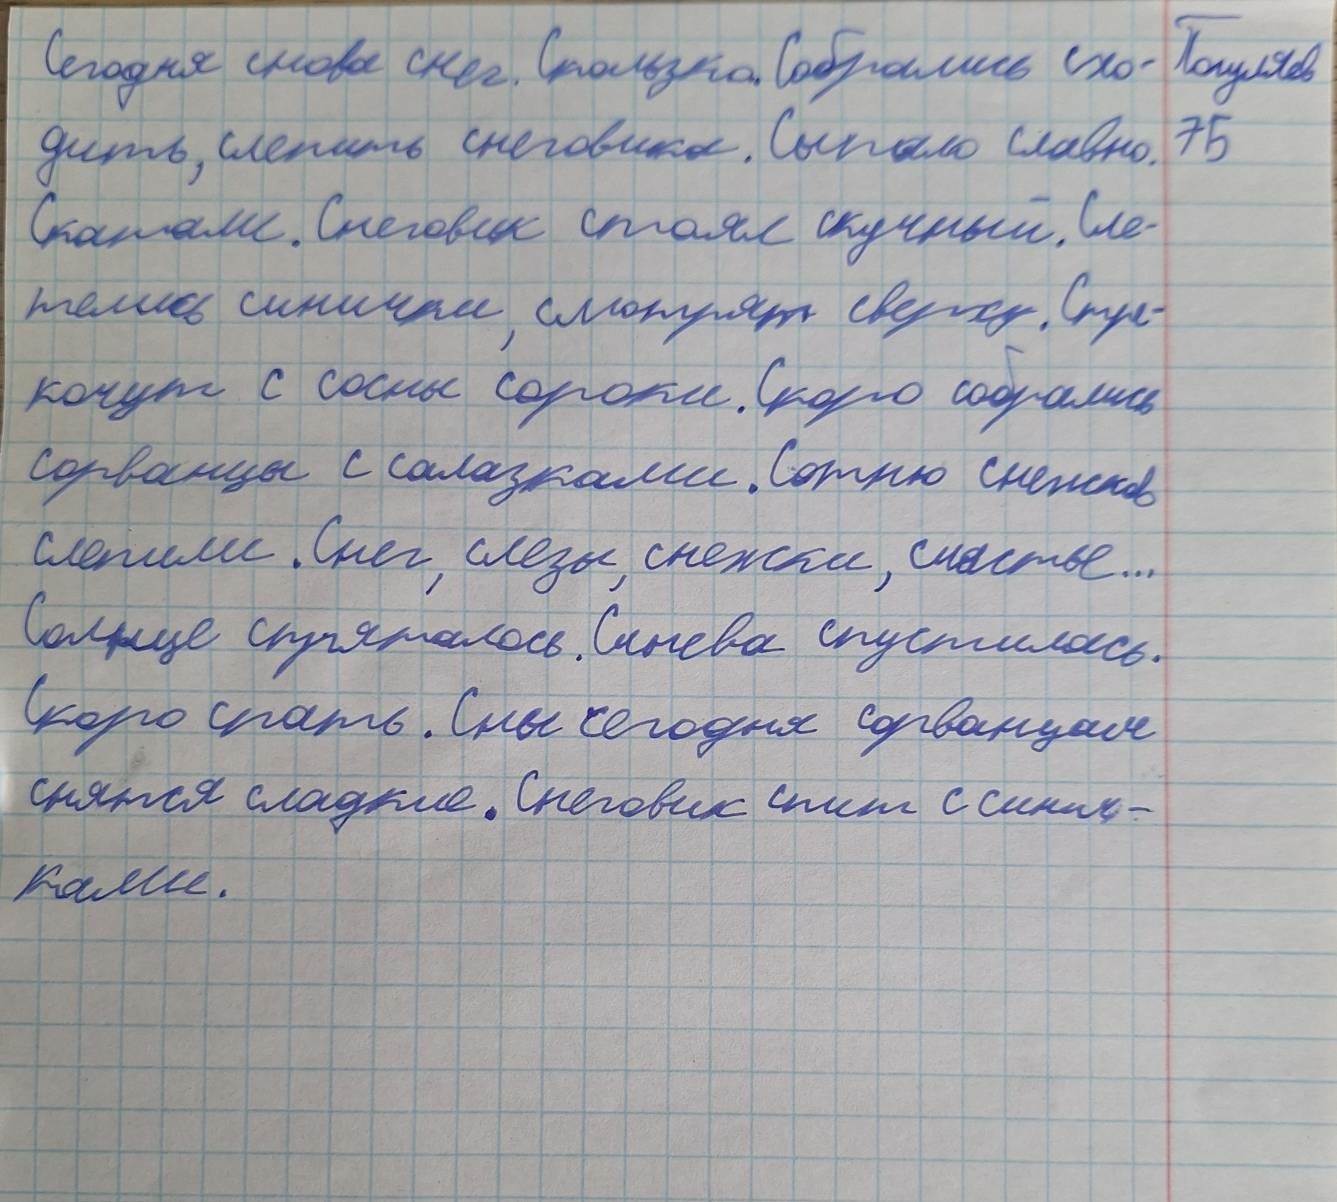 Сегодня снова снег. Скользко. Собрались схо-
дить, слепить снеговика. Сыпало славно.
Скатали. Снеговик стоял скучный. Сле-
телись синички, смотрят сверху. Стре-
кочут с сосны сороки. Скоро собрались
сорванцы с салазками. Сотню снежков
слепили. Снег, слёзы, снежки, счастье...
Солнце спряталось. Синева спустилась.
Скоро спать. Сны сегодня сорванцам
снятся сладкие. Снеговик спит с синич-
ками.
75